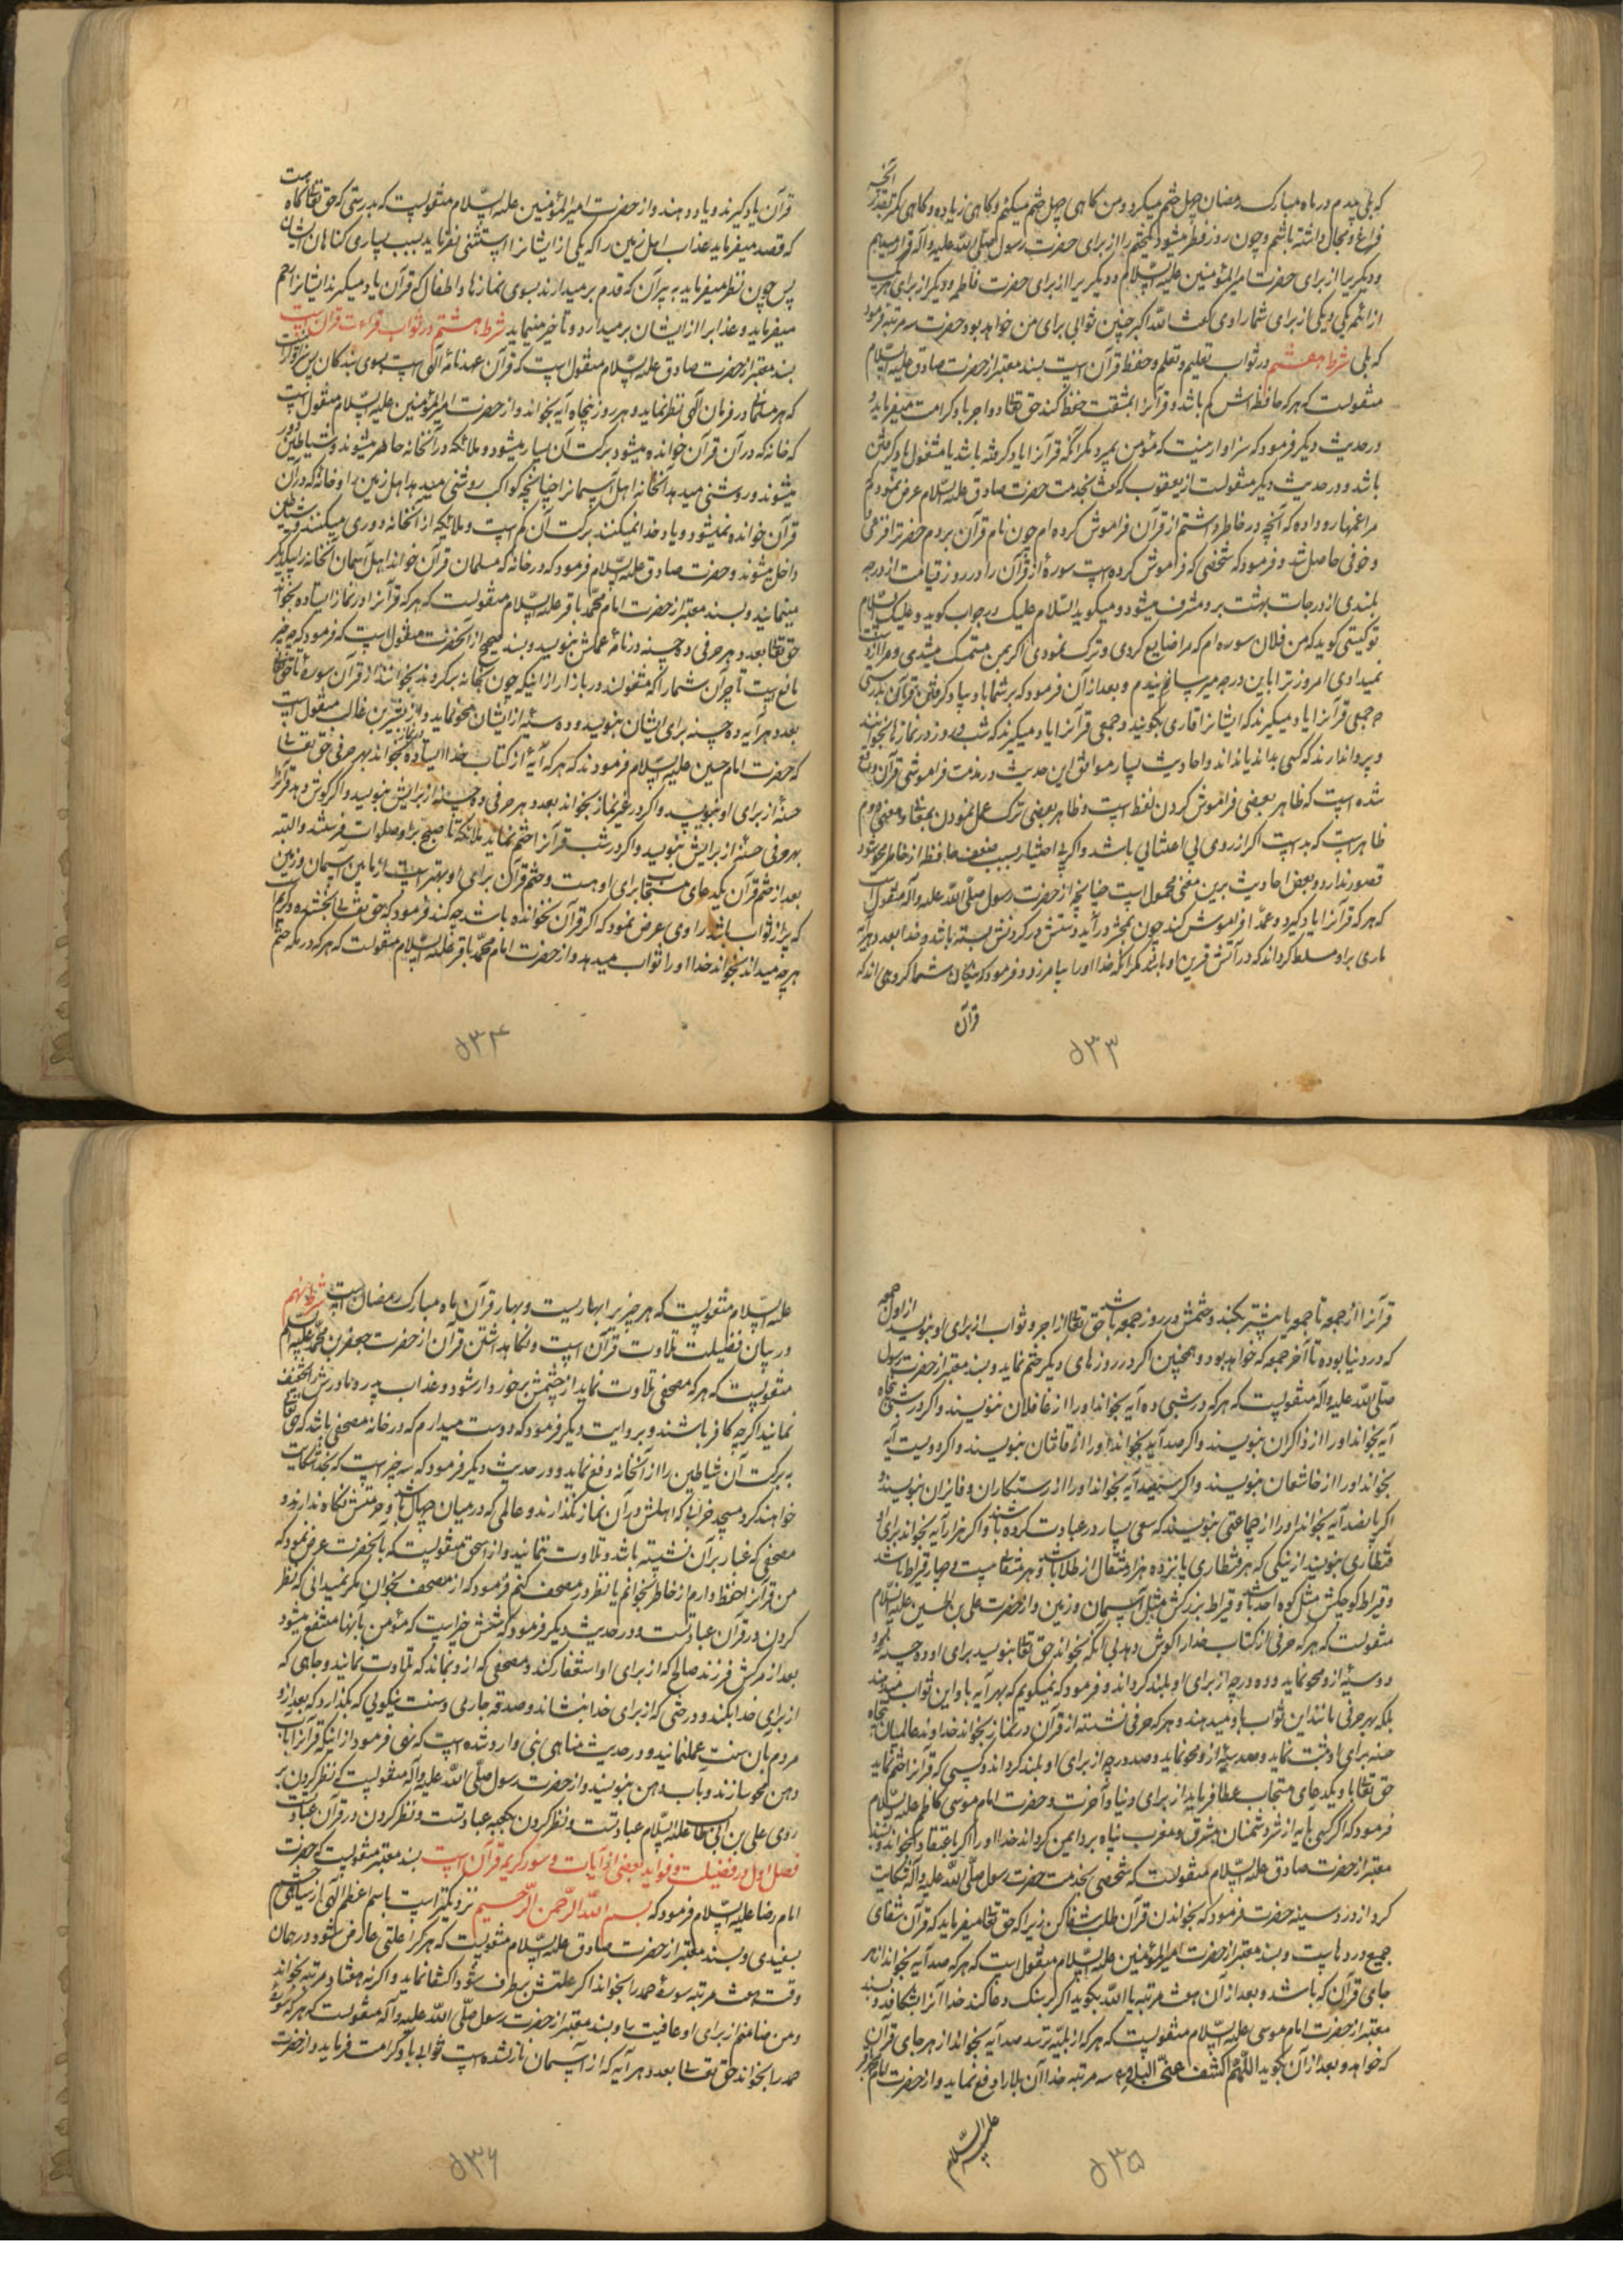 که بلی پدرم در ماه مبارک رمضان چهل ختم میکرد و من کاهی چهل ختم میکنم و کاهی زیاده و کاهی کمتر بقدر آنچه
فراغ و مجال داشته باشم و چون روز فطر میشود یکختم را از برای حضرت رسول صلی الله علیه وآله قرار میدهم
و دیگریرا از برای حضرت امیر المؤمنین علیه السلام و دیگریرا از برای حضرت فاطمه و دیگر از برای هریک
از ائمه یکی و یکی از برای شما راوی گفت الله اکبر چنین ثوابی برای من خواهد بود حضرت سه مرتبه فرمود
که بلی شرط هفتم در ثواب تعلیم و تعلم و حفظ قرآن است بسند معتبر از حضرت صادق علیه السلام
منقولست که هر که حافظه اش کم باشد و قرآنرا بمشقت حفظ کند حق تعالی دو اجر باو کرامت میفرماید و
در حدیث دیگر فرمود که سزاوار نیست که مؤمن بمیرد مگر آنکه قرآنرا یاد گرفته باشد یا مشغول یاد گرفتن
باشد و در حدیث دیگر منقولست از یعقوب که گفت بخدمت حضرت صادق علیه السلام عرض نمودم که
مرا غمها رو داده که آنچه در خاطر داشتم از قرآن فراموش کرده ام چون نام قرآن بردم حضرترا فزعی
و خوفی حاصل شد و فرمود که شخصی که فراموش کرده است سورهٔ از قرآن را در روز قیامت از درجهٔ
بلندی از درجات بهشت برو مشرف میشود و میگوید السلام علیک در جواب گوید و علیک السلام
تو کیستی گوید که من فلان سوره ام که مرا ضایع کردی و ترک نمودی اگر بمن متمسک میشدی و مرا از دست
نمیدادی امروز ترا باین درجه میرسانیدم و بعد از آن فرمود که بر شما باد بیاد گرفتن قرآن بدرستی
که جمعی قرآنرا یاد میگیرند که ایشانرا قاری بگویند و جمعی قرآنرا یاد میگیرند که شب و روز در نماز بخوانند
و پروا ندارند که کسی بداند یا نداند و احادیث بسیار موافق این حدیث در مذمت فراموشی قرآن واقع
شده است که ظاهر بعضی فراموش کردن لفظ است و ظاهر بعضی ترک عمل نمودن بمقتضا و معنی دوم
ظاهر است که بد است اگر از روی بی اعتنائی باشد و اگر بی اختیار بسبب ضعف حافظه از خاطر محو شود
قصور ندارد و بعضی احادیث برین معنی محمول است چنانچه از حضرت رسول صلی الله علیه وآله منقول است
که هر که قرآنرا یاد گیرد و عمدا فراموش کند چون بمحشر در آید دستش در گردنش بسته باشد و خدا بعدد هر آیه
ماری براو مسلط گرداند که در آتش قرین او باشد مگر آنکه خدا او را بیامرزد و فرمود که نیکان شما گروهی اند که
قرآن
۵۳۳
قرآن یاد گیرند و یاد دهند و از حضرت امیر المؤمنین علیه السلام منقولست که بدرستی که حق تعالی گاه هست
که قصد میفرماید عذاب اهل زمین را که یکی از ایشانرا استثنی نفرماید بسبب بسیاری گناهان ایشان
پس چون نظر میفرماید به پیرآن که قدم برمیدارند بسوی نمازها و اطفال که قرآن یاد میگیرند ایشانرا رحم
میفرماید و عذابرا از ایشان برمیدارد و تأخیر مینماید شرط هشتم در ثواب قراءت قرآن است
بسند معتبر از حضرت صادق علیه السلام منقول است که قرآن عهدنامهٔ الهی است بسوی بندکان پس سزاوار است
که هر مسلمانی در فرمان الهی نظر نماید و هر روز پنجاه آیه بخواند و از حضرت امیر المؤمنین علیه السلام منقول است
که خانه که در آن قرآن خوانده میشود برکت آن بسیار میشود و ملائکه در آنخانه حاضر میشوند و شیاطین دور
میشوند و روشنی میدهد آنخانه اهل آسمانرا چنانچه کواکب روشنی میدهد اهل زمین را و خانه که در آن
قرآن خوانده نمیشود و یاد خدا نمیکنند برکت آن کم است و ملائکه از آنخانه دوری میکنند و شیاطین
داخل میشوند و حضرت صادق علیه السلام فرمود که در خانه که مسلمان قرآن خواند اهل آسمان آنخانه را بیکدیگر
مینمایند و بسند معتبر از حضرت امام محمد باقر علیه السلام منقولست که هر که قرآنرا در نماز ایستاده بخواند
حق تعالی بعدد هر حرفی ده حسنه در نامهٔ عملش بنویسد و بسند صحیح از آنحضرت منقول است که فرمود که چه چیز
مانع است تاجران شما را که مشغولند در بازار از اینکه چون بخانه برگردند بخوانند از قرآن سورهٔ تا حق تعالی
بعدد هر آیه ده حسنه برای ایشان بنویسد و ده سیئه از ایشان محو نماید و از بشر بن غالب منقول است
که حضرت امام حسین علیه السلام فرمودند که هر که آیهٔ از کتاب خدا ایستاده در نماز بخواند بهر حرفی حق تعالی
حسنهٔ از برای او بنویسد و اگر در غیر نماز بخواند بعدد هر حرفی ده حسنه از برایش بنویسد و اگر گوش دهد قرآنرا
بهر حرفی حسنهٔ از برایش بنویسد و اگر در شب قرآنرا ختم نماید ملائکه تا صبح براو صلوات فرستند و البته
بعد از ختم قرآن یکدعای مستجاب برای او هست و ختم قرآن برای او بهتر است از مابین آسمان و زمین
که پر از ثواب باشد راوی عرض نمود که اگر قرآن نخوانده باشد چه کند فرمود که حق تعالی بخشنده و کریم است
هر چه میداند بخواند خدا او را ثواب میدهد و از حضرت امام محمد باقر علیه السلام منقولست که هر که در مکه ختم
۵۳۴
قرآنرا از جمعه تا جمعه یا بیشتر بکند و ختمش در روز جمعه باشد حق تعالی از اجر و ثواب از برای او بنویسد از اول جمعه
که در دنیا بوده تا آخر جمعه که خواهد بود و همچنین اگر در روزهای دیگر ختم نماید و بسند معتبر از حضرت رسول
صلی الله علیه وآله منقولست که هر که در شبی ده آیه بخواند او را از غافلان ننویسند و اگر در شبی پنجاه
آیه بخواند او را از ذاکران بنویسند و اگر صد آیه بخواند او را از قانتان بنویسند و اگر دویست آیه
بخواند او را از خاشعان بنویسند و اگر سیصد آیه بخواند او را از رستکاران و فایزان بنویسند و
اگر پانصد آیه بخواند او را از جماعتی بنویسند که سعی بسیار در عبادت کرده باشند و اگر هزار آیه بخواند برای او
قنطاری بنویسند از نیکی که هر قنطاری پانزده هزار مثقال از طلا باشد و هر مثقالی بیست و چهار قیراط باشد
و قیراط کوچکش مثل کوه احد باشد و قیراط بزرگش مثل آسمان و زمین و از حضرت علی بن الحسین علیه السلام
منقولست که هر که حرفی از کتاب خدا را گوش دهد بی آنکه بخواند حق تعالی بنویسد برای او ده حسنه و
ده سیئه ازو محو نماید و ده درجه از برای او بلند گرداند و فرمود که نمیگویم که بهر آیه باو این ثواب میدهند
بلکه بهر حرفی مانند این ثواب باو میدهند و هر که حرفی نشسته از قرآن در نماز بخواند خداوند عالمیان پنجاه
حسنه برای او ثبت نماید و صد سیئه از او محو نماید و صد درجه از برای او بلند گرداند و کسی که قرآنرا ختم نماید
حق تعالی باو یکدعای مستجاب عطا فرماید از برای دنیا و آخرت و حضرت امام موسی کاظم علیه السلام
فرمود که اگر کسی بآیه از شر دشمنان مشرق و مغرب پناه برد ایمن گرداند خدا او را اگر باعتقاد بخواند و بسند
معتبر از حضرت صادق علیه السلام منقولست که شخصی بخدمت حضرت رسول صلی الله علیه وآله شکایت
کرد از درد سینه حضرت فرمود که بخواندن قرآن طلب شفا کن زیرا که حق تعالی میفرماید که قرآن شفای
جمیع دردهاست و بسند معتبر از حضرت امیر المؤمنین علیه السلام منقول است که هر که صد آیه بخواند از هر
جای قرآن که باشد و بعد از آن هفت مرتبه یا الله بگوید اگر بر سنگ دعا کند خدا آنرا بشکافد و بسند
معتبر از حضرت امام موسی علیه السلام منقولست که هر که از بلیّه ترسد صد آیه بخواند از هر جای قرآن
که خواهد و بعد از آن بگوید اللهم اکشف عنی البلاء سه مرتبه خدا آن بلا را دفع نماید و از حضرت امام جعفر
علیه السلام
۵۳۵
علیه السلام منقولست که هر چیز را بهاریست و بهار قرآن ماه مبارک رمضان است شرط نهم
در بیان فضیلت تلاوت قرآن است و نکاهداشتن قرآن از حضرت جعفر بن محمد علیه السلام
منقولست که هر که مصحفی تلاوت نماید از چشمش برخوردار شود و عذاب پدر و مادرش را تخفیف
نمایند اگرچه کافر باشند و بروایت دیگر فرمود که دوست میدارم که در خانه مصحفی باشد که حق تعالی
به برکت آن شیاطین را از آنخانه دفع نماید و در حدیث دیگر فرمود که سه چیز است که بخدا شکایت
خواهند کرد مسجد خرابی که اهلش در آن نماز نگذارند و عالمی که در میان جهال باشد و حرمتش نگاه ندارند و
مصحفی که غبار بر آن نشسته باشد و تلاوت ننمایند و از اسحق منقولست که بآنحضرت عرض نمود که
من قرآنرا حفظ دارم از خاطر بخوانم یا نظر در مصحف کنم فرمود که از مصحف بخوان مگر نمیدانی که نظر
کردن در قرآن عبادتست و در حدیث دیگر فرمود که شش خیر است که مؤمن بآنها منتفع میشود
بعد از مرگش فرزند صالح که از برای او استغفار کند و مصحفی که ازو بماند که تلاوت نمایند و چاهی که
از برای خدا بکند و درختی که از برای خدا بنشاند و صدقه جاریی و سنت نیکوئی که بگذارد که بعد ازو
مردم بآن سنت عمل نمایند و در حدیث مناهی نبی وارد شده است که نهی فرمود از اینکه قرآنرا بآب
دهن محو سازند و بآب دهن بنویسند و از حضرت رسول صلی الله علیه وآله منقولست که نظر کردن بر
روی علی بن ابی طالب علیه السلام عبادتست و نظر کردن بکعبه عبادتست و نظر کردن در قرآن عبادتست
فصل اول در فضیلت و فواید بعضی از آیات و سور کریم قرآن است بسند معتبر منقولست که حضرت
امام رضا علیه السلام فرمود که بسم الله الرحمن الرحیم نزدیکتر است باسم اعظم الهی از سیاهی چشم
بسفیدی و بسند معتبر از حضرت صادق علیه السلام منقولست که هر کرا علتی عارض شود در همان
وقت هفت مرتبه سورهٔ حمد را بخواند اگر علتش برطرف شود اکتفا نماید و اگر نه هفتاد مرتبه بخواند
و من ضامنم از برای او عافیت را و بسند معتبر از حضرت رسول صلی الله علیه وآله منقولست که هر که سورهٔ
حمد را بخواند حق تعالی بعدد هر آیه که از آسمان نازل شده است ثوابی باو کرامت فرماید و از حضرت
۵۳۶